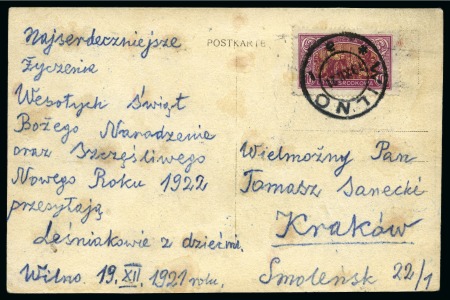 Najserdeczniejsze
Życzenia
Wesołych Świąt
Bożego Narodzenia
oraz Szczęśliwego
Nowego Roku 1922
przesyłają
Leśniakowie z dziećmi.
Wilno. 19. XII. 1921 roku.
POSTKARTE
WILNO
Wielmożny Pan
Tomasz Sanecki
Kraków
Smoleńsk 22/1